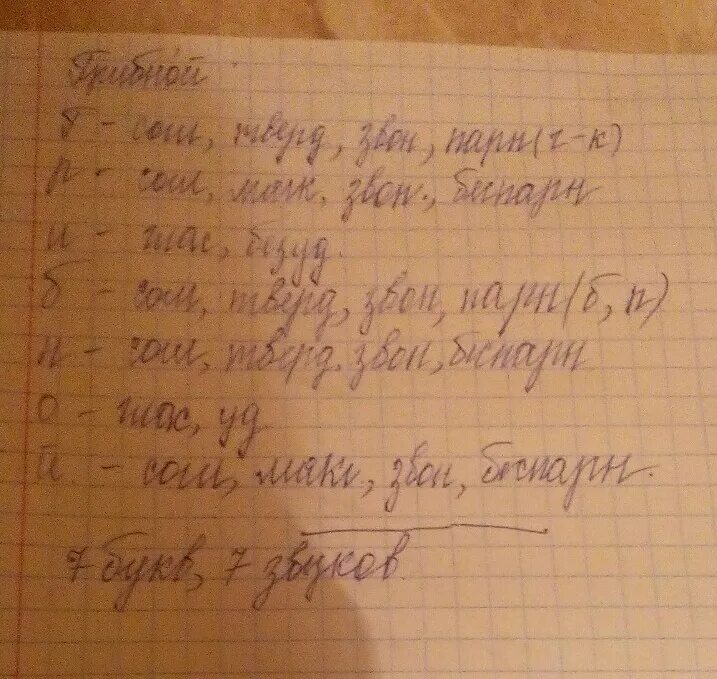 Грибной
Г - согл, тверд, звон, парн (г-к)
р - согл, мягк, звон., беспарн
и - глас, безуд.
б - согл, тверд, звон, парн (б, п)
н - согл, тверд, звон, беспарн
о - глас, уд
й - согл, мягк, звон, беспарн.
7 букв, 7 звуков.